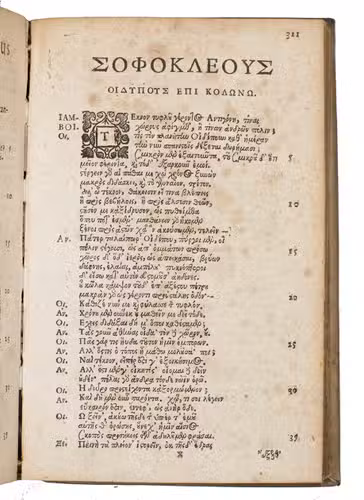 US
321
ΣΟΦΟΚΛΕΟΥΣ
ΟΙΔΥΠΟΥΣ ΕΠΙ ΚΟΛΩΝΩ.
ΙΑΜ-
ΒΟΙ.
Οι. ΤΕκνον τυφλοῦ γέροντος Αντιγόνη, τίνας
χώρους ἀφίγμεθ', ἢ τίνων ἀνδρῶν πόλιν;
τίς τὸν πλανήτην Οἰδίπουν καθ' ἡμέραν
τὴν νῦν σπανιστοῖς δέξεται δωρήμασι;
Σμικρὸν μὲν ἐξαιτοῦντα, τοῦ σμικροῦ δ' ἔτι 5
μεῖον φέροντα, καὶ τόδ' ἐξαρκοῦν ἐμοί.
στέργειν γὰρ αἱ πάθαι με χὠ χρόνος ξυνὼν
μακρὸς διδάσκει, καὶ τὸ γενναῖον, τρίτον.
ἀλλ' ὦ τέκνον, θάκησιν εἴ τινα βλέπεις
ἢ πρὸς βεβήλοις, ἢ πρὸς ἄλσεσιν θεῶν, 10
στῆσόν με κἀξίδρυσον, ὡς πυθώμεθα
ὅπου ποτ' ἐσμέν· μανθάνειν γὰρ ἥκομεν
ξένοι πρὸς ἀστῶν χ' ἂν ἀκούσωμεν, τελεῖν.
Αν. Πάτερ ταλαίπωρ' Οἰδίπους, πύργοι μὲν, οἳ
πόλιν στέγουσιν, ὡς ἀπ' ὀμμάτων πρόσω· 15
χῶρος δ' ὅδ' ἱερὸς, ὡς ἀπεικάσαι, βρύων
δάφνης, ἐλαίας, ἀμπέλου· πυκνόπτεροι
δ' εἴσω κατ' αὐτὸν εὐστομοῦσ' ἀηδόνες.
οὗ κῶλα κάμψον τοῦδ' ἐπ' ἀξέστου πέτρου·
μακρὰν γὰρ ὡς γέροντι προὐστάλης ὁδόν. 20
Οι. Κάθιζέ νύν με καὶ φύλασσε τὸν τυφλόν.
Αν. Χρόνου μὲν οὕνεκ' οὐ μαθεῖν με δεῖ τόδε.
Οι. Ἔχεις διδάξαι δή μ' ὅποι καθέσταμεν;
Αν. Τὰς γοῦν Ἀθήνας οἶδα, τὸν δὲ χῶρον, οὔ.
Οι. Πᾶς γάρ τις ηὔδα τοῦτό γ' ἡμῖν ἐμπόρων. 25
Αν. Ἀλλ' ὅστις ὁ τόπος ἦ μάθω μολοῦσά ποι;
Οι. Ναὶ τέκνον, εἴπερ ἐστί γ' ἐξοικήσιμος.
Αν. Ἀλλ' ἐστὶ μὴν οἰκητός· οἴομαι δὲ δεῖν
οὐδέν· πέλας γὰρ ἄνδρα τόνδε νῶιν ὁρῶ.
Οι. Ἦ δεῦρο προσστείχοντα κἀξορμώμενον; 30
Αν. Καὶ δὴ μὲν οὖν παρόντα. χὤ, τι σοι λέγειν
εὔκαιρόν ἐστιν, ἔννεφ', ὡς ἀνὴρ ὅδε.
Οι. Ὦ ξεῖν', ἀκούων τῆσδε τῆς ὑπέρ τ' ἐμοῦ
αὐτῆς θ' ὁρώσης, οὕνεχ' ἡμῖν αἴσιος
Σκοπὸς προσήκεις τῶν ἀδηλούμεν φράσαι. 35
Ξε. Πρὶν νῦν τὰ πλείον' ἱστορεῖν, ἐκ τῆσδ' ἕδρας
X